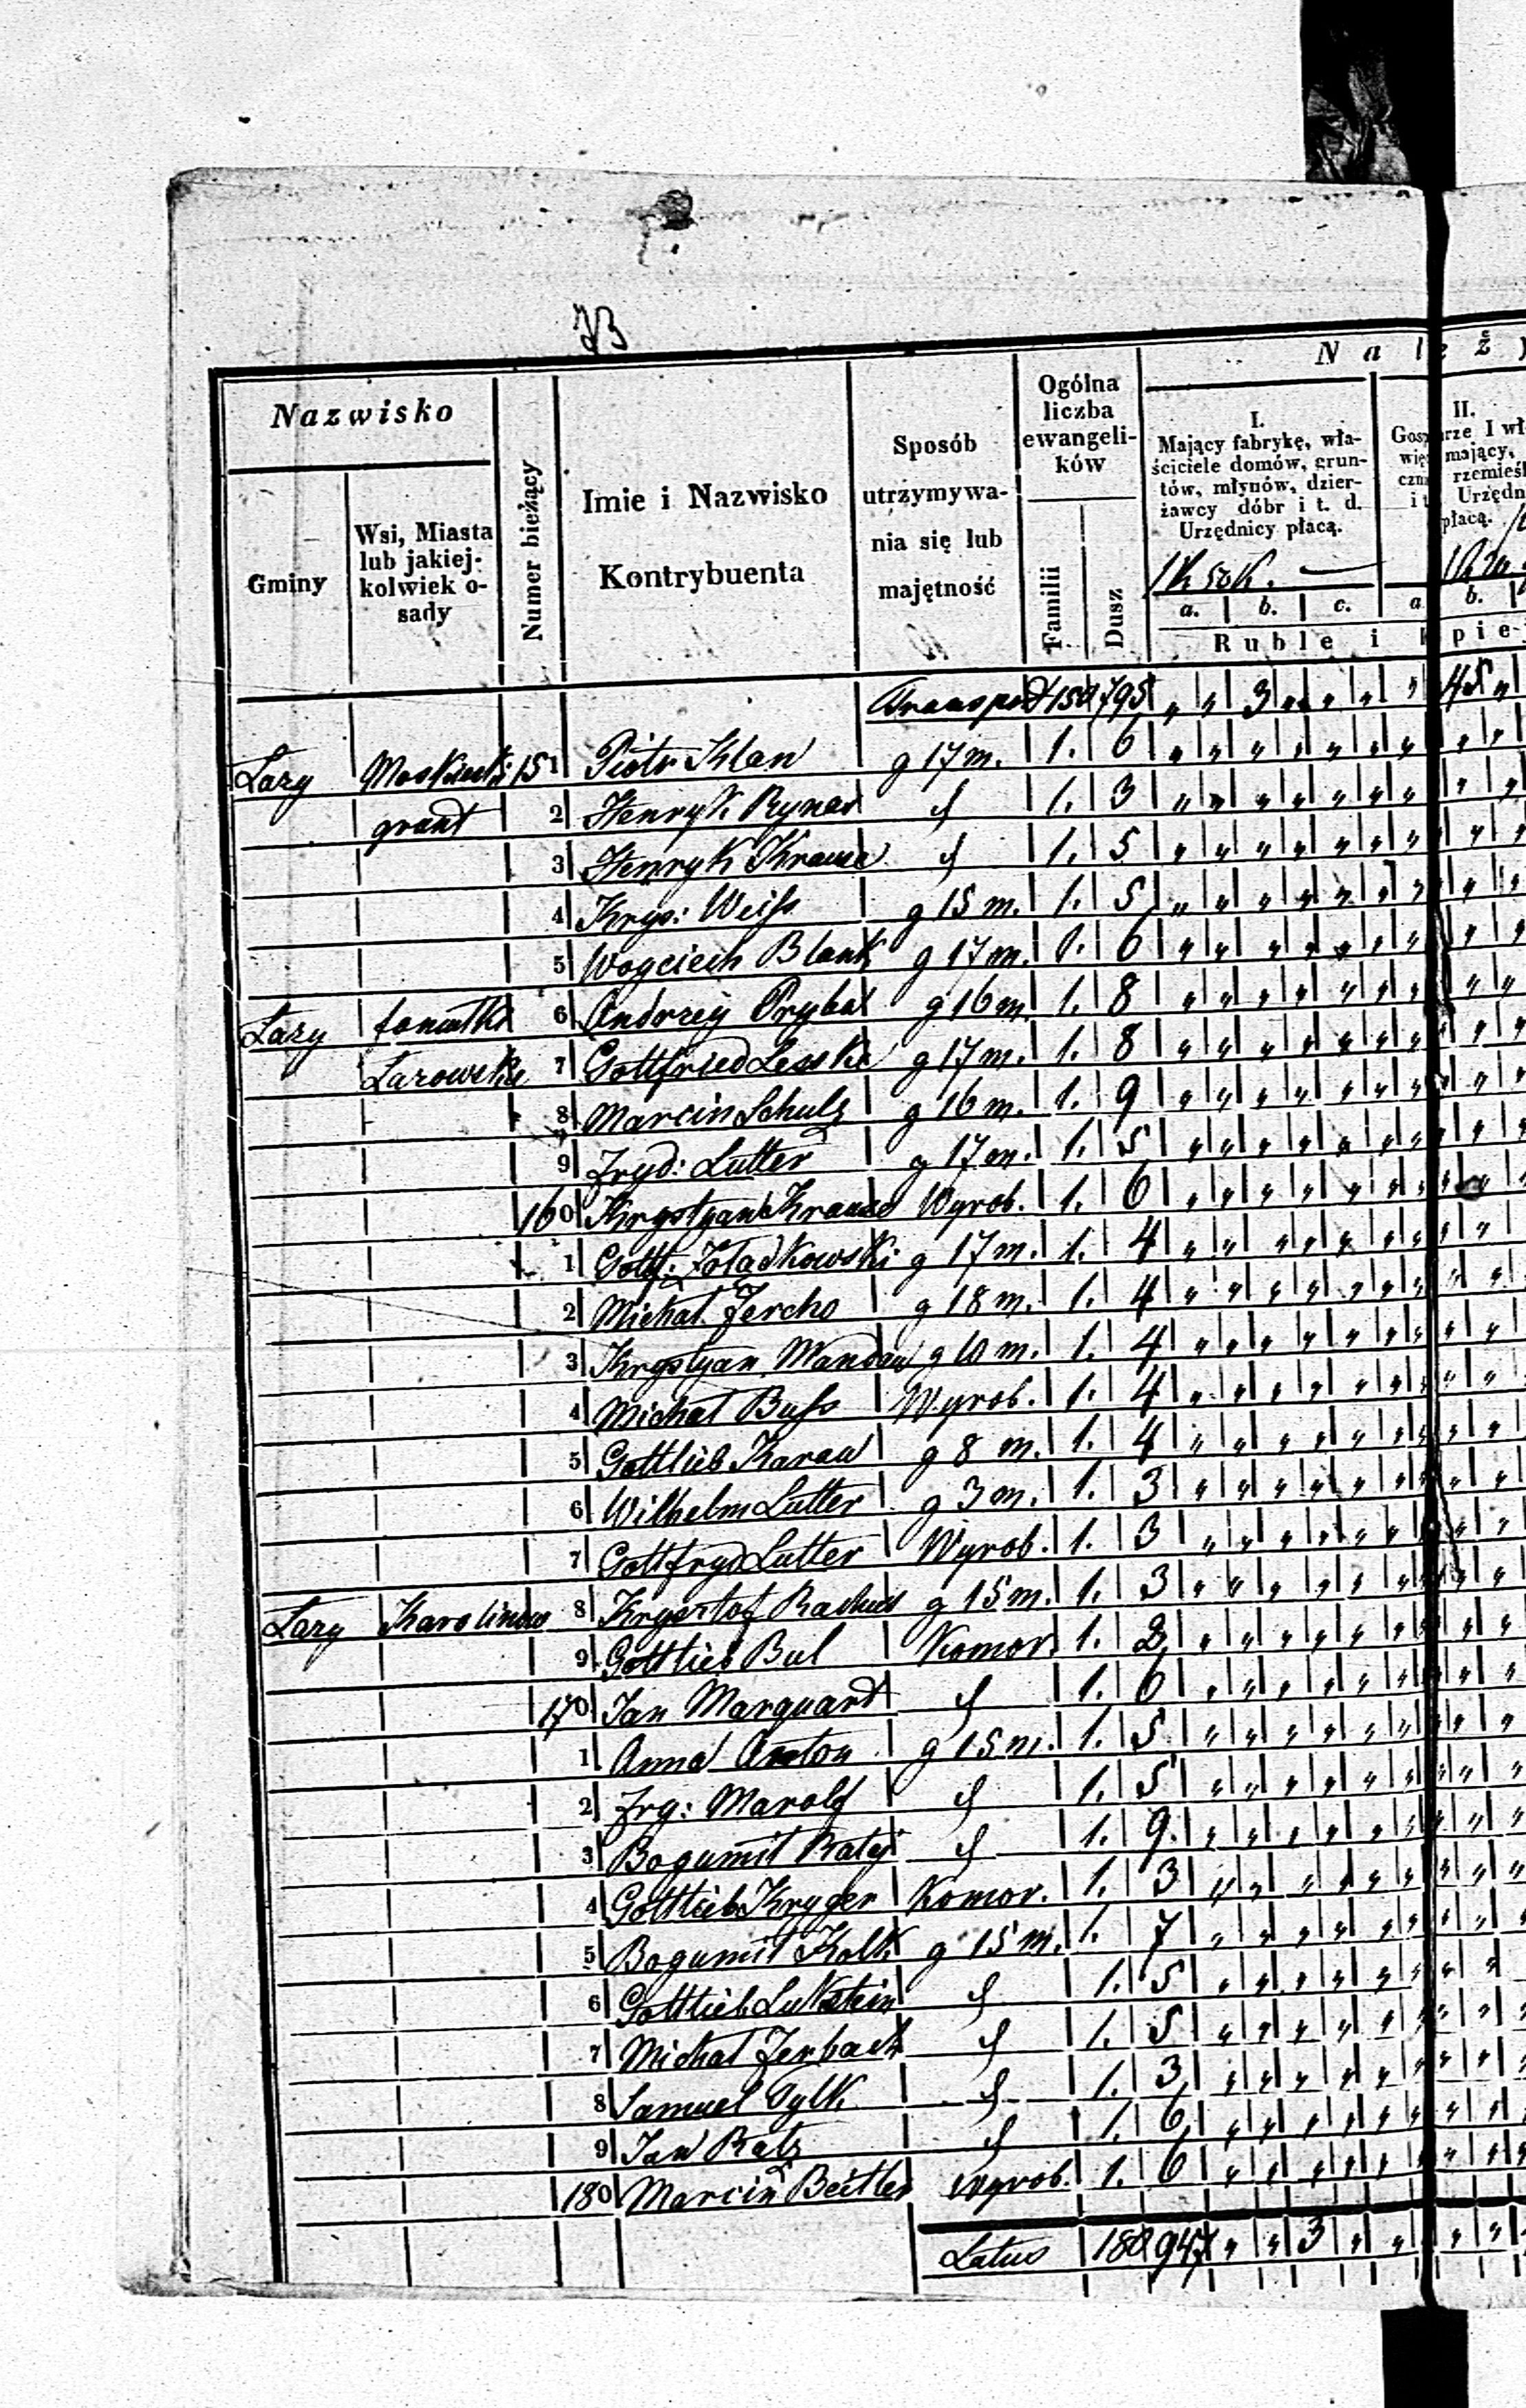 Nazwisko
Gminy
Wsi, Miasta
lub jakiej-
kolwiek o-
sady
Numer bieżący
Imie i Nazwisko
Kontrybuenta
Sposób
utrzymywa-
nia się lub
majętność
Ogólna
liczba
ewangeli-
ków
Familii
Dusz
N a l e ż
I.
Mający fabrykę, wła-
ściciele domów, grun-
tów, młynów, dzier-
żawcy dóbr i t. d.
Urzędnicy płacą.
a. b. c.
II.
rze I wł
mający,
rzemieśl
Urzędn
płacą.
a b.
Ruble i
Transport 150 795 " " 3 " " " "
Łazy 151 Piotr Klan g 17 m. 1. 6 " " " " " " "
grunt 2 Henryk Ryner 1. 3 " " " " " " "
3 Henryk Krause 1. 5 " " " " " " "
4 Krys: Weiss g 15 m. 1. 5 " " " " " " "
5 Woyciech Blank g 17 m. 1. 6 " " " " " " "
Łazy 6 Andrzey Prybal g 16 m. 1. 8 " " " " " " "
Lazowskie 7 Gottfried Lesske g 17 m. 1. 8 " " " " " " "
8 Marcin Schulz g 16 m. 1. 9 " " " " " " "
9 Fryd: Lutter g 17 m. 1. 5 " " " " " " "
160 Krystyan Krause Wyrob. 1. 6 " " " " " " "
1 Gottf: Żoładkowski g 17 m. 1. 4 " " " " " " "
2 Michał Jercho g 18 m. 1. 4 " " " " " " "
3 Krystyan Wandau g 10 m. 1. 4 " " " " " " "
4 Michał Buss Wyrob. 1. 4 " " " " " " "
5 Gottlieb Karau g 8 m. 1. 4 " " " " " " "
6 Wilhelm Lutter g 3 m. 1. 3 " " " " " " "
7 Gottfryd Lutter Wyrob. 1. 3 " " " " " " "
Łazy Karolinow 8 Krysztof g 15 m. 1. 3 " " " " " " "
9 Gottlieb Bul Komor. 1. 2 " " " " " " "
170 Jan Marquardt 1. 6 " " " " " " "
1 Anna Anton g 15 m. 1. 5 " " " " " " "
2 Fry: Marolf 1. 5 " " " " " " "
3 Bogumił Ratej 1. 9. " " " " " " "
4 Gottlieb Kryger Komor. 1. 3 " " " " " " "
5 Bogumił Kolk g 15 m. 1. 7 " " " " " " "
6 Gottlieb Lukstein 1. 5 " " " " " " "
7 Michał Jerbach 1. 5 " " " " " " "
8 Samuel Tylk 1. 3 " " " " " " "
9 Jan Ratz 1. 6 " " " " " " "
180 Marcin Beitler Wyrob. 1. 6 " " " " " " "
Latus 180 947 " " 3 " "